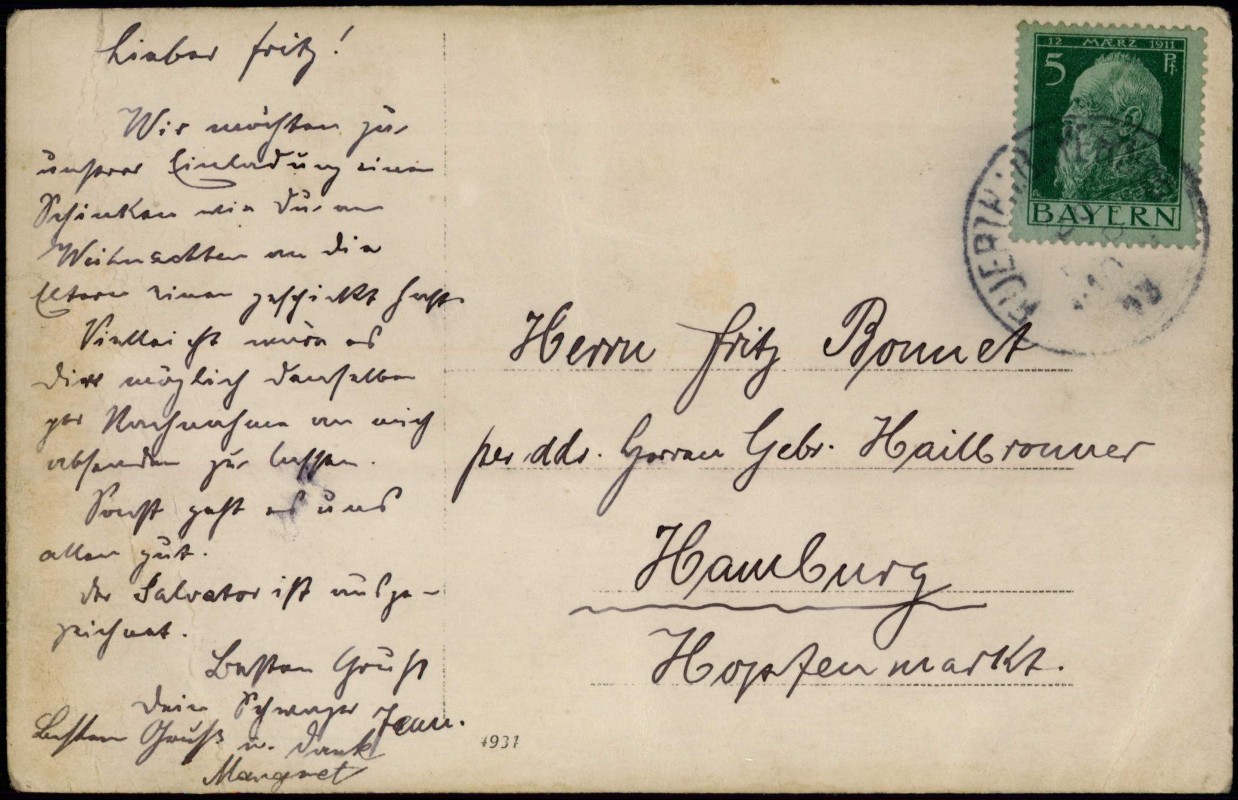 Lieber Fritz!
Wir möchten zu
unserer Einladung einen
Schinken wie Du an
Weihnachten an die
Eltern einen geschickt hast.
Vielleicht wäre es
Dir möglich denselben
per Nachnahme an mich
absenden zu lassen.
Sonst geht es uns
allen gut.
Der Salvator ist ausge-
zeichnet.
Besten Gruß
Dein Schwager Jean.
Besten Gruß u. Dank
Margret
12 MÆRZ 1911
5 Pf
BAYERN
Herrn Fritz Bonnet
per ddr. Herren Gebr. Heilbronner
Hamburg
Hopfenmarkt.
4931